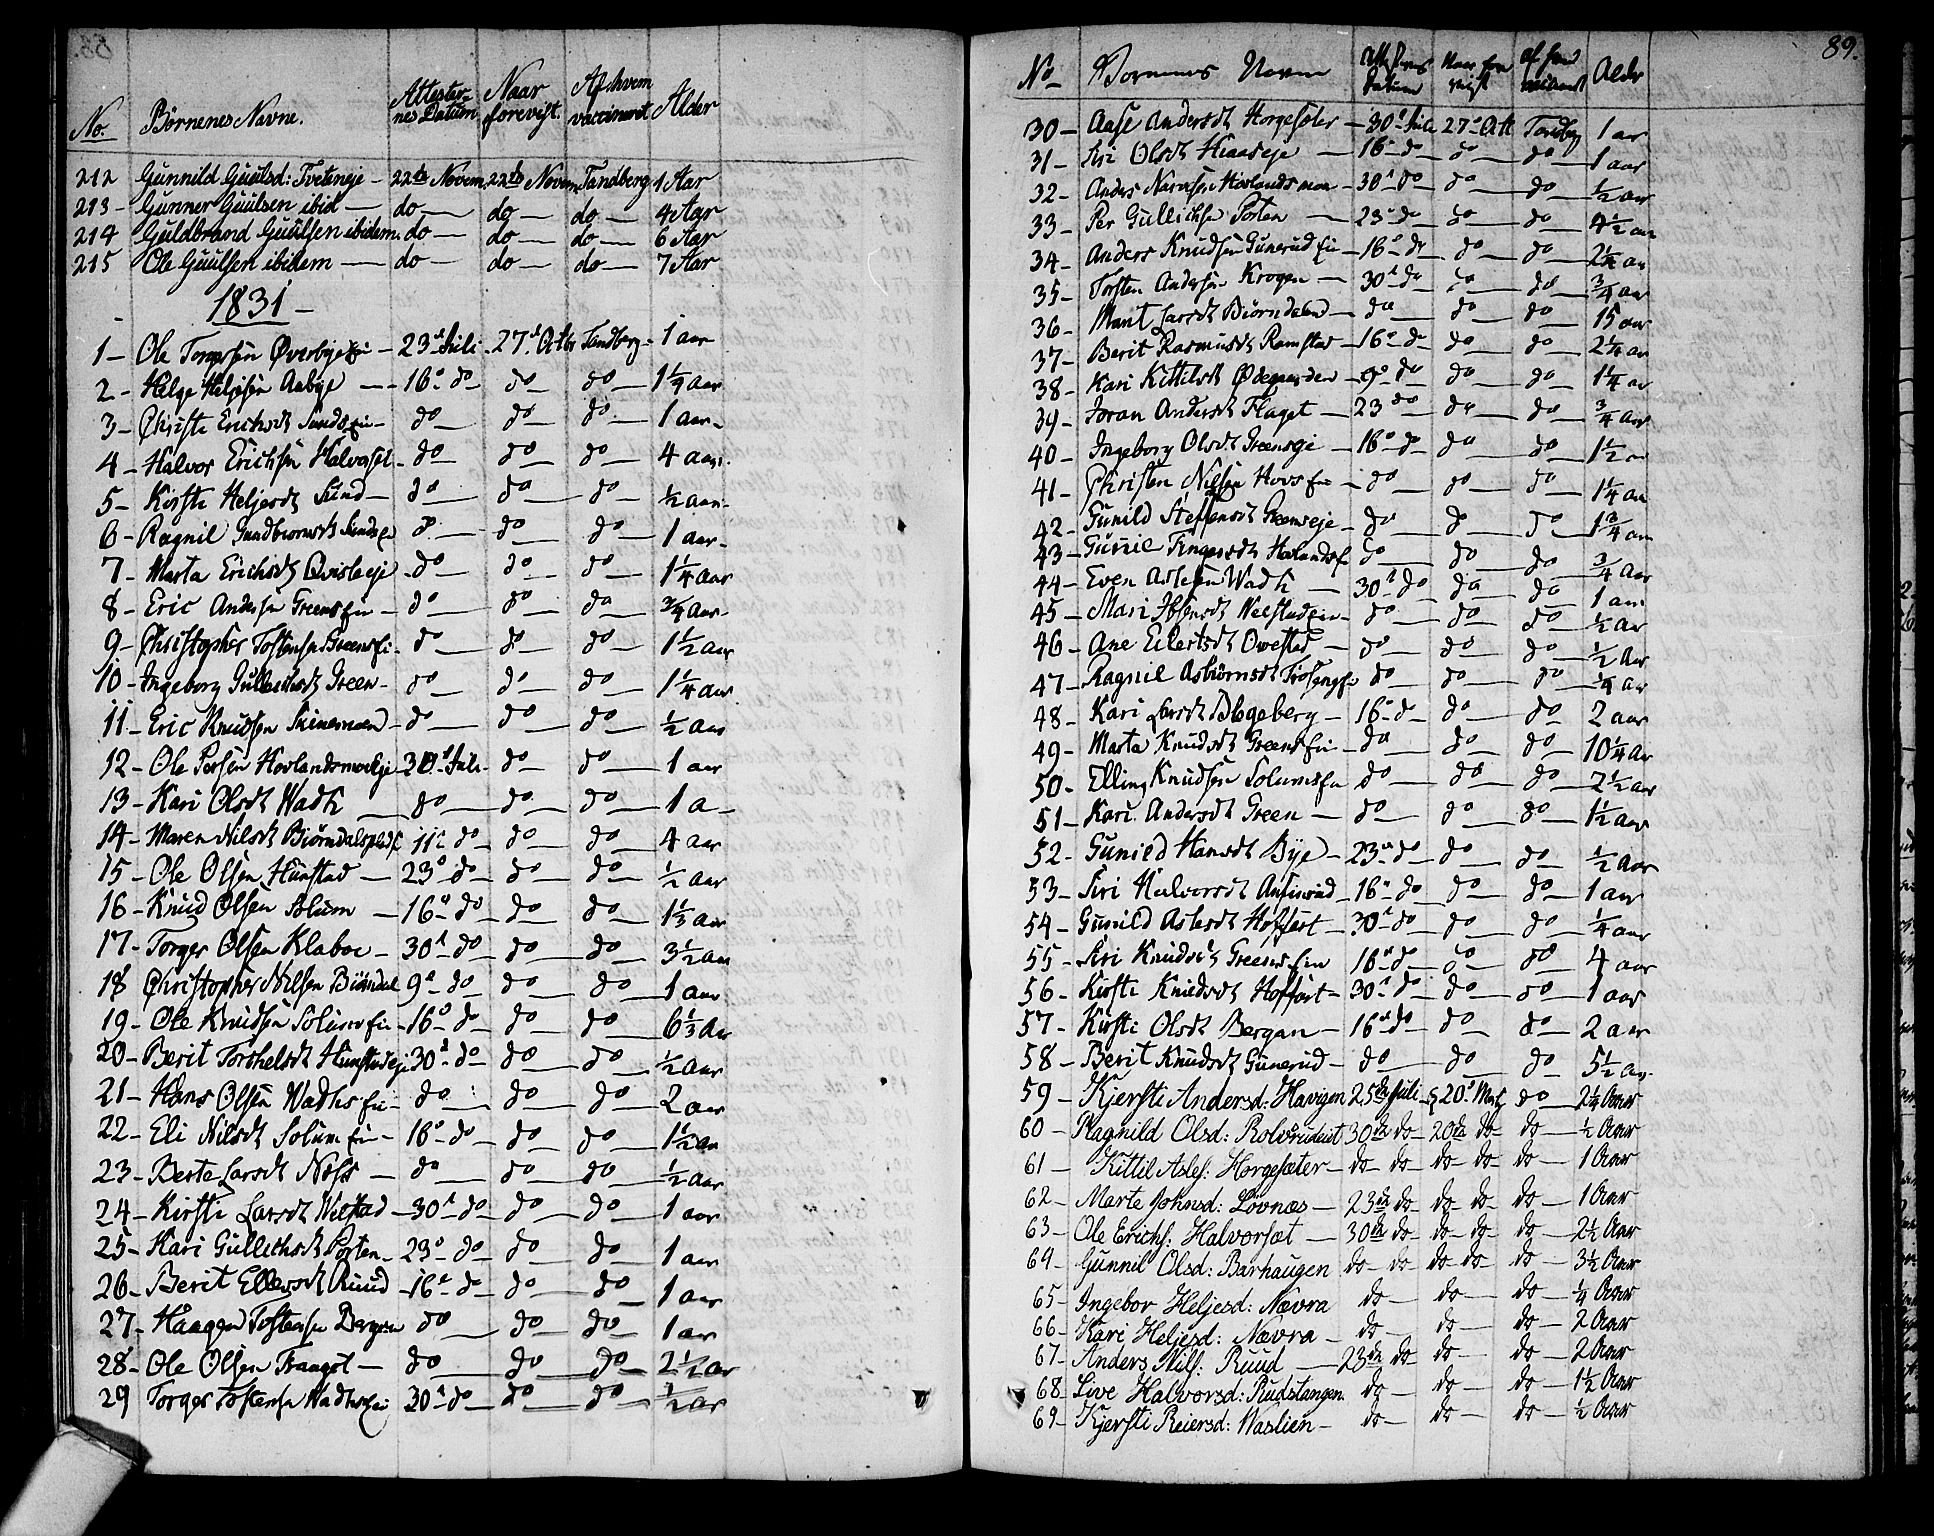 No. Børnenes Navne. Attesternes Datum Naar forevist. Af hvem vaccineret Alder
212 Gunnild Guulsd: Tveteneje - 22de Novem. 22de Novem Tandberg 1 Aar
213 - Gunner Guulsen ibid - do - do - do - 4 Aar
214 - Guldbrand Guulsen ibidem. do - do - do - 6 Aar
215 Ole Guulsen ibidem - do - do - do - 7 Aar
1831 -
1 - Ole Øverbye - 23d Juli - 27d Octbr Tandberg - 1 aar
2 - Helge Aabye - 16d do do do 1 1/4 aar
3 - Christi Erichsdt - do do do 1 aar -
4 - Halvor Erichsen Halvorset - do do do 4 aar
5 - Kirsti Heljesdt Sund - do do do 1/2 aar
6 - Ragnil do do do 1 aar -
7 - Marta Erichsdt Qvisleeje - do do do 1 1/4 aar
8 - Eric Andersen Greens - do do do 3/4 aar
9 - Christopher Tostensen Greens - do do do 1 1/2 aar
10 - Ingeborg Gullichsdt Green - do do do 1 1/4 aar
11 - Eric Knudsen - do do do 1/2 aar
12 - Ole Persen Hovlandsmoeje - 30d Juli - do do 1 aar
13 - Kari Olsdt Wadh do do do 1 a -
14 - Maren Nilsdt Biørndalspladsf 11d do do do 4 aar
15 - Ole Olsen Hunstad - 23d do do do 1/2 aar
16 - Knud Olsen Solum - 16d do do do 1 1/3 aar
17 - Torger Olsen Klaboe - 30d do do do 3 1/2 aar
18 Christopher Nilsen Biørndal 9d do do do 1 aar
19 - Ole Knudsen Solums - 16d do do do 6 1/3 Aar
20 - Berit Torkelsdt Hunstadeje 30d do do do 1/2 aar
21 - Hans Olsen Wadhs - do do do 2 aar
22 - Eli Nilsdt Solum - 16d do do do 1 1/2 aar
23 - Berte Larsdt Næss - do do do 1/2 aar
24 - Kirsti Larsdt Wilstad - 30d do do do 1 aar
25 - Kari Gullichsdt Porten - 23d do do do 1 aar
26 - Berit Ellevsdt Ruud - 16d do do do 1 aar
27 - Haagen Tostensen Bergan do do do 1 aar
28 - Ole Olsen Traagot - do do do 2 1/2 ar
29 Torger Tostensen Wadhs - 30d do do do 1/2 ar
89.
No Børnenes Navne Attesternes Datum Naar forevist af hvem vaccineret Alder
30 - Aase Andersdt Horgeseter - 30d Juli 27d Oct Tandberg 1 ar
31 - Siri Olsdt Hiaaseje - 16d do do do 1 aar
32 - Anders Hovlandsmoe - 30d do do do 1/2 aar
33 - Per Gullichsen Porten - 23d do do do 4 1/2 aar
34 - Anders Knudsen Gunerud - 16d do do do 2 1/4 aar
35 - Tosten Andersen Krogen - 30d do do do 3/4 aar
36 - Marit Larsdt Biørndalen - do do do 15 aar
37 - Berit Rasmusdt Ramstad - 16d do do do 2 1/4 aar
38 - Kari Kittilsdt Ødegaarden - 9d do do do 1 1/4 ar
39 - Joran Andersdt Flaget - 23 do do do 3/4 aar
40 - Ingeborg Olsdt Greenseje - 16d do do do 1 1/2
41 - Christen Nilsen Hovs - do do do 1 1/4 aar
42 - Gunild Steffensdt Greenseje - do do do 1 3/4 aar
43 - Gunil Hovlands do do do 3/4 Aar
44 - Even Aslesen Wadh - 30d do do do 1 aar
45 - Mari do do do 1/2 aar
46 - Ane Eilertsdt - do do do 1/2 Aar
47 - Ragnil Asbiørnsdt do do do 1/4 ar
48 - Kari Larsdt Blegeberg - 16d do do do 2 aar
49 - Marta Knudsdt Greens - do do do 10 1/4 Ar
50 - Elling Knudsen Solums do do do 2 1/2 aar
51 - Kari Andersdt Green - do do do 1 1/2 aar
52 - Gunild Hansdt Bye - 23d do do do 1/2 Aar
53 - Siri Halvorsdt 16d do do do 1 aar
54 - Gunild Aslesdt Hoffart - 30d do do do 1/4 aar
55 - Siri Knudsdt Greens 16d do do do 4 aar
56 - Kirsti Knudsdt Hoffart - 30d do do do 1 aar
57 - Kirsti Olsdt Bergan - 16d do do do 2 aar
58 - Berit Knudsdt Gunerud - do do do 5 1/2 ar
59 - Kjersti Andersd: Havigen 25de Juli - 20d do 2 1/4 Aar
60 - Ragnild Olsd: 30de do - 20de do - do - 1/2 Aar
61 - Kittil Aslef: Horgesæter - do do - do do - do - 1 Aar
62 - Marte Johnsd: Løvnæs - 23de do do do do - 1 Aar
63 - Ole Erichs: Halvorsæt - 30de do - do - do - do - 2 1/2 Aar
64 - Gunnil Olsd: Barhaugen do - do - do do - do - 3 1/2 Aar
65 - Ingebor Heljesd: Nævra do - do - do - 1/4 Aar
66 - Kari Heljesd: Nævra - do - do - do - 2 Aar
67 - Anders Nils: Ruud - 23de do do - do - 2 Aar
68 - Live Halvorsd: Rudstangen do - do - do - 1 1/2 Aar
69 - Kjersti Reiersd: Waslien - do - do - do - 1/2 Aar